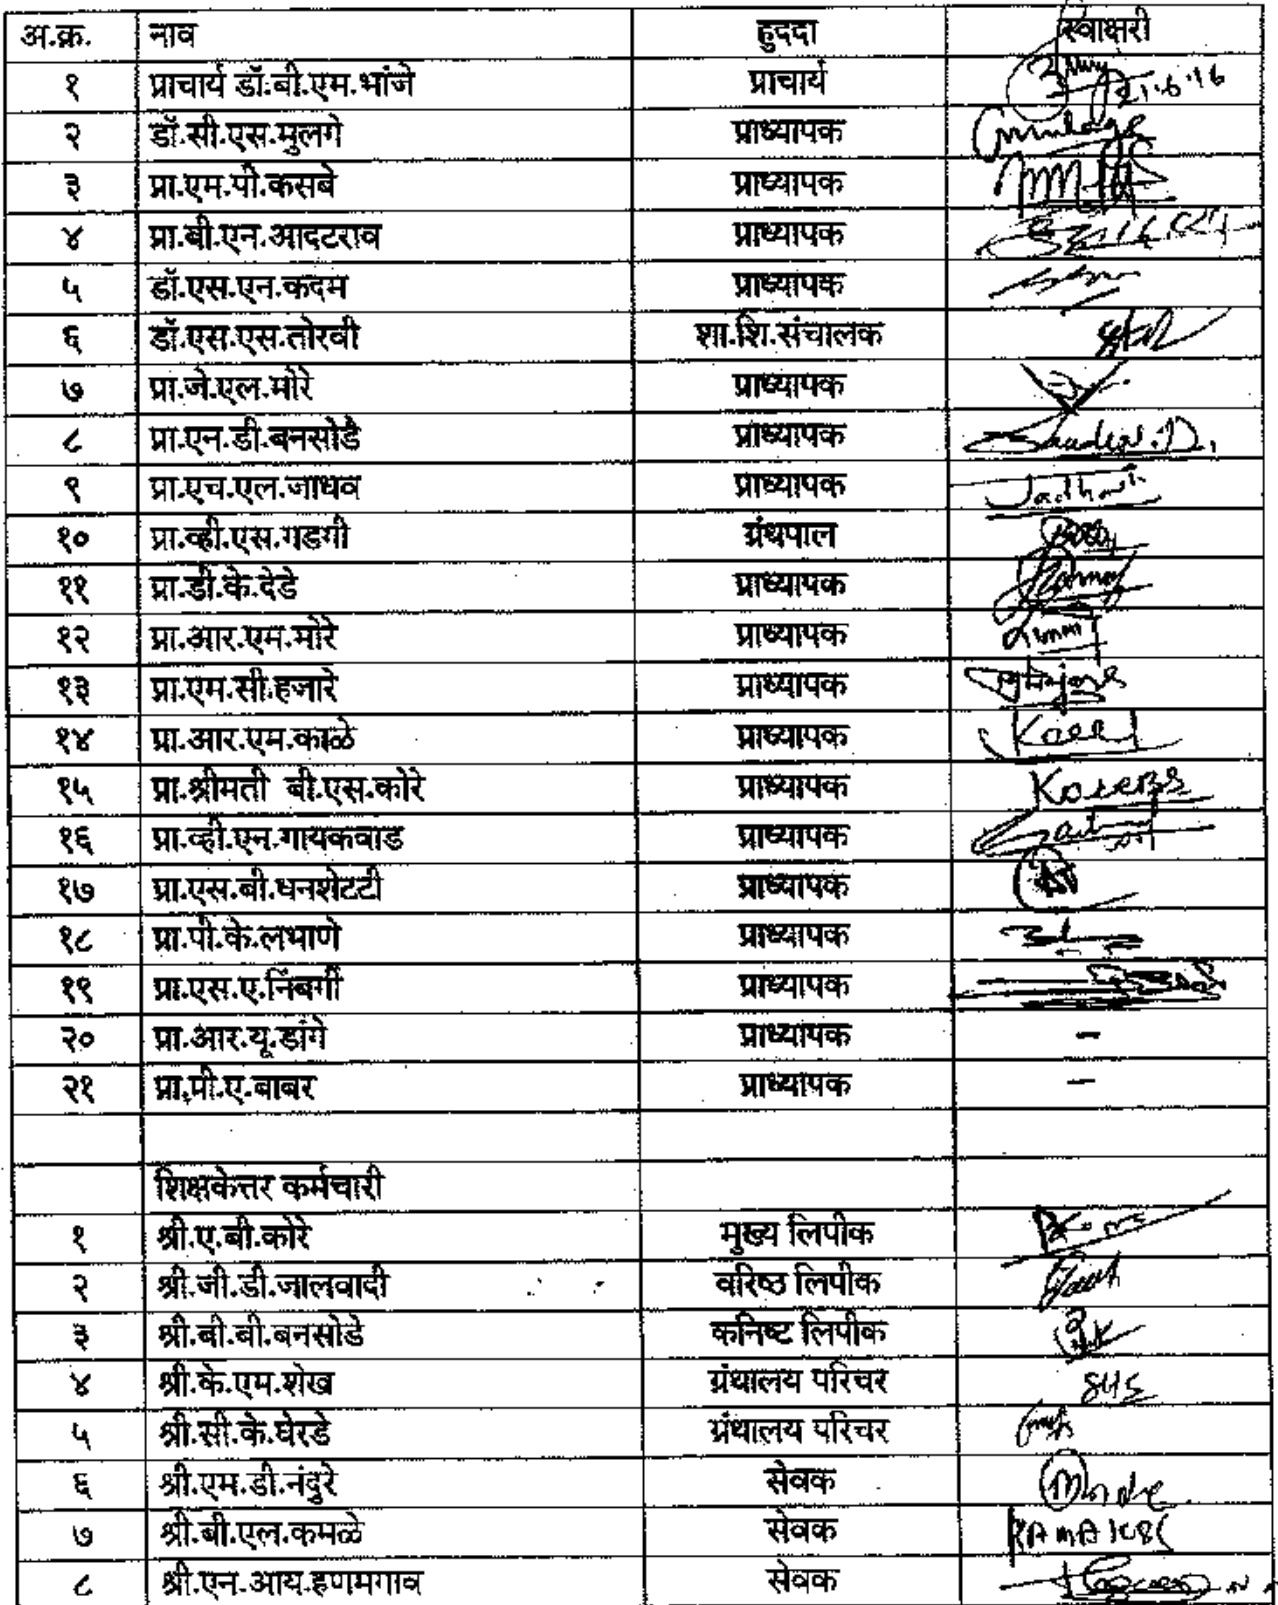 अ.क्र. नाव हुददा स्वाक्षरी
१ प्राचार्य डॉ.बी.एम.भांजे प्राचार्य 21.6.16
२ डॉ.सी.एस.मुलगे प्राध्यापक
३ प्रा.एम.पी.कसबे प्राध्यापक
४ प्रा.बी.एन.आदटराव प्राध्यापक
५ डॉ.एस.एन.कदम प्राध्यापक
६ डॉ.एस.एस.तोरवी शा.शि.संचालक
७ प्रा.जे.एल.मोरे प्राध्यापक
८ प्रा.एन.डी.बनसोडे प्राध्यापक
९ प्रा.एच.एल.जाधव प्राध्यापक Jadhav
१० प्रा.व्ही.एस.गडगी ग्रंथपाल
११ प्रा.डी.के.देडे प्राध्यापक
१२ प्रा.आर.एम.मोरे प्राध्यापक
१३ प्रा.एम.सी.हजारे प्राध्यापक
१४ प्रा.आर.एम.काळे प्राध्यापक
१५ प्रा.श्रीमती बी.एस.कोरे प्राध्यापक KoreBS
१६ प्रा.व्ही.एन.गायकवाड प्राध्यापक
१७ प्रा.एस.बी.धनशेटटी प्राध्यापक
१८ प्रा.पी.के.लभाणे प्राध्यापक
१९ प्रा.एस.ए.निंबर्गी प्राध्यापक
२० प्रा.आर.यू.डांगे प्राध्यापक -
२१ प्रा.पी.ए.बाबर प्राध्यापक -
शिक्षकेत्तर कर्मचारी
१ श्री.ए.बी.कोरे मुख्य लिपीक
२ श्री.जी.डी.जालवादी वरिष्ठ लिपीक
३ श्री.बी.बी.बनसोडे कनिष्ट लिपीक
४ श्री.के.एम.शेख ग्रंथालय परिचर
५ श्री.सी.के.घेरडे ग्रंथालय परिचर
६ श्री.एम.डी.नंदुरे सेवक
७ श्री.बी.एल.कमळे सेवक
८ श्री.एन.आय.हणमगाव सेवक